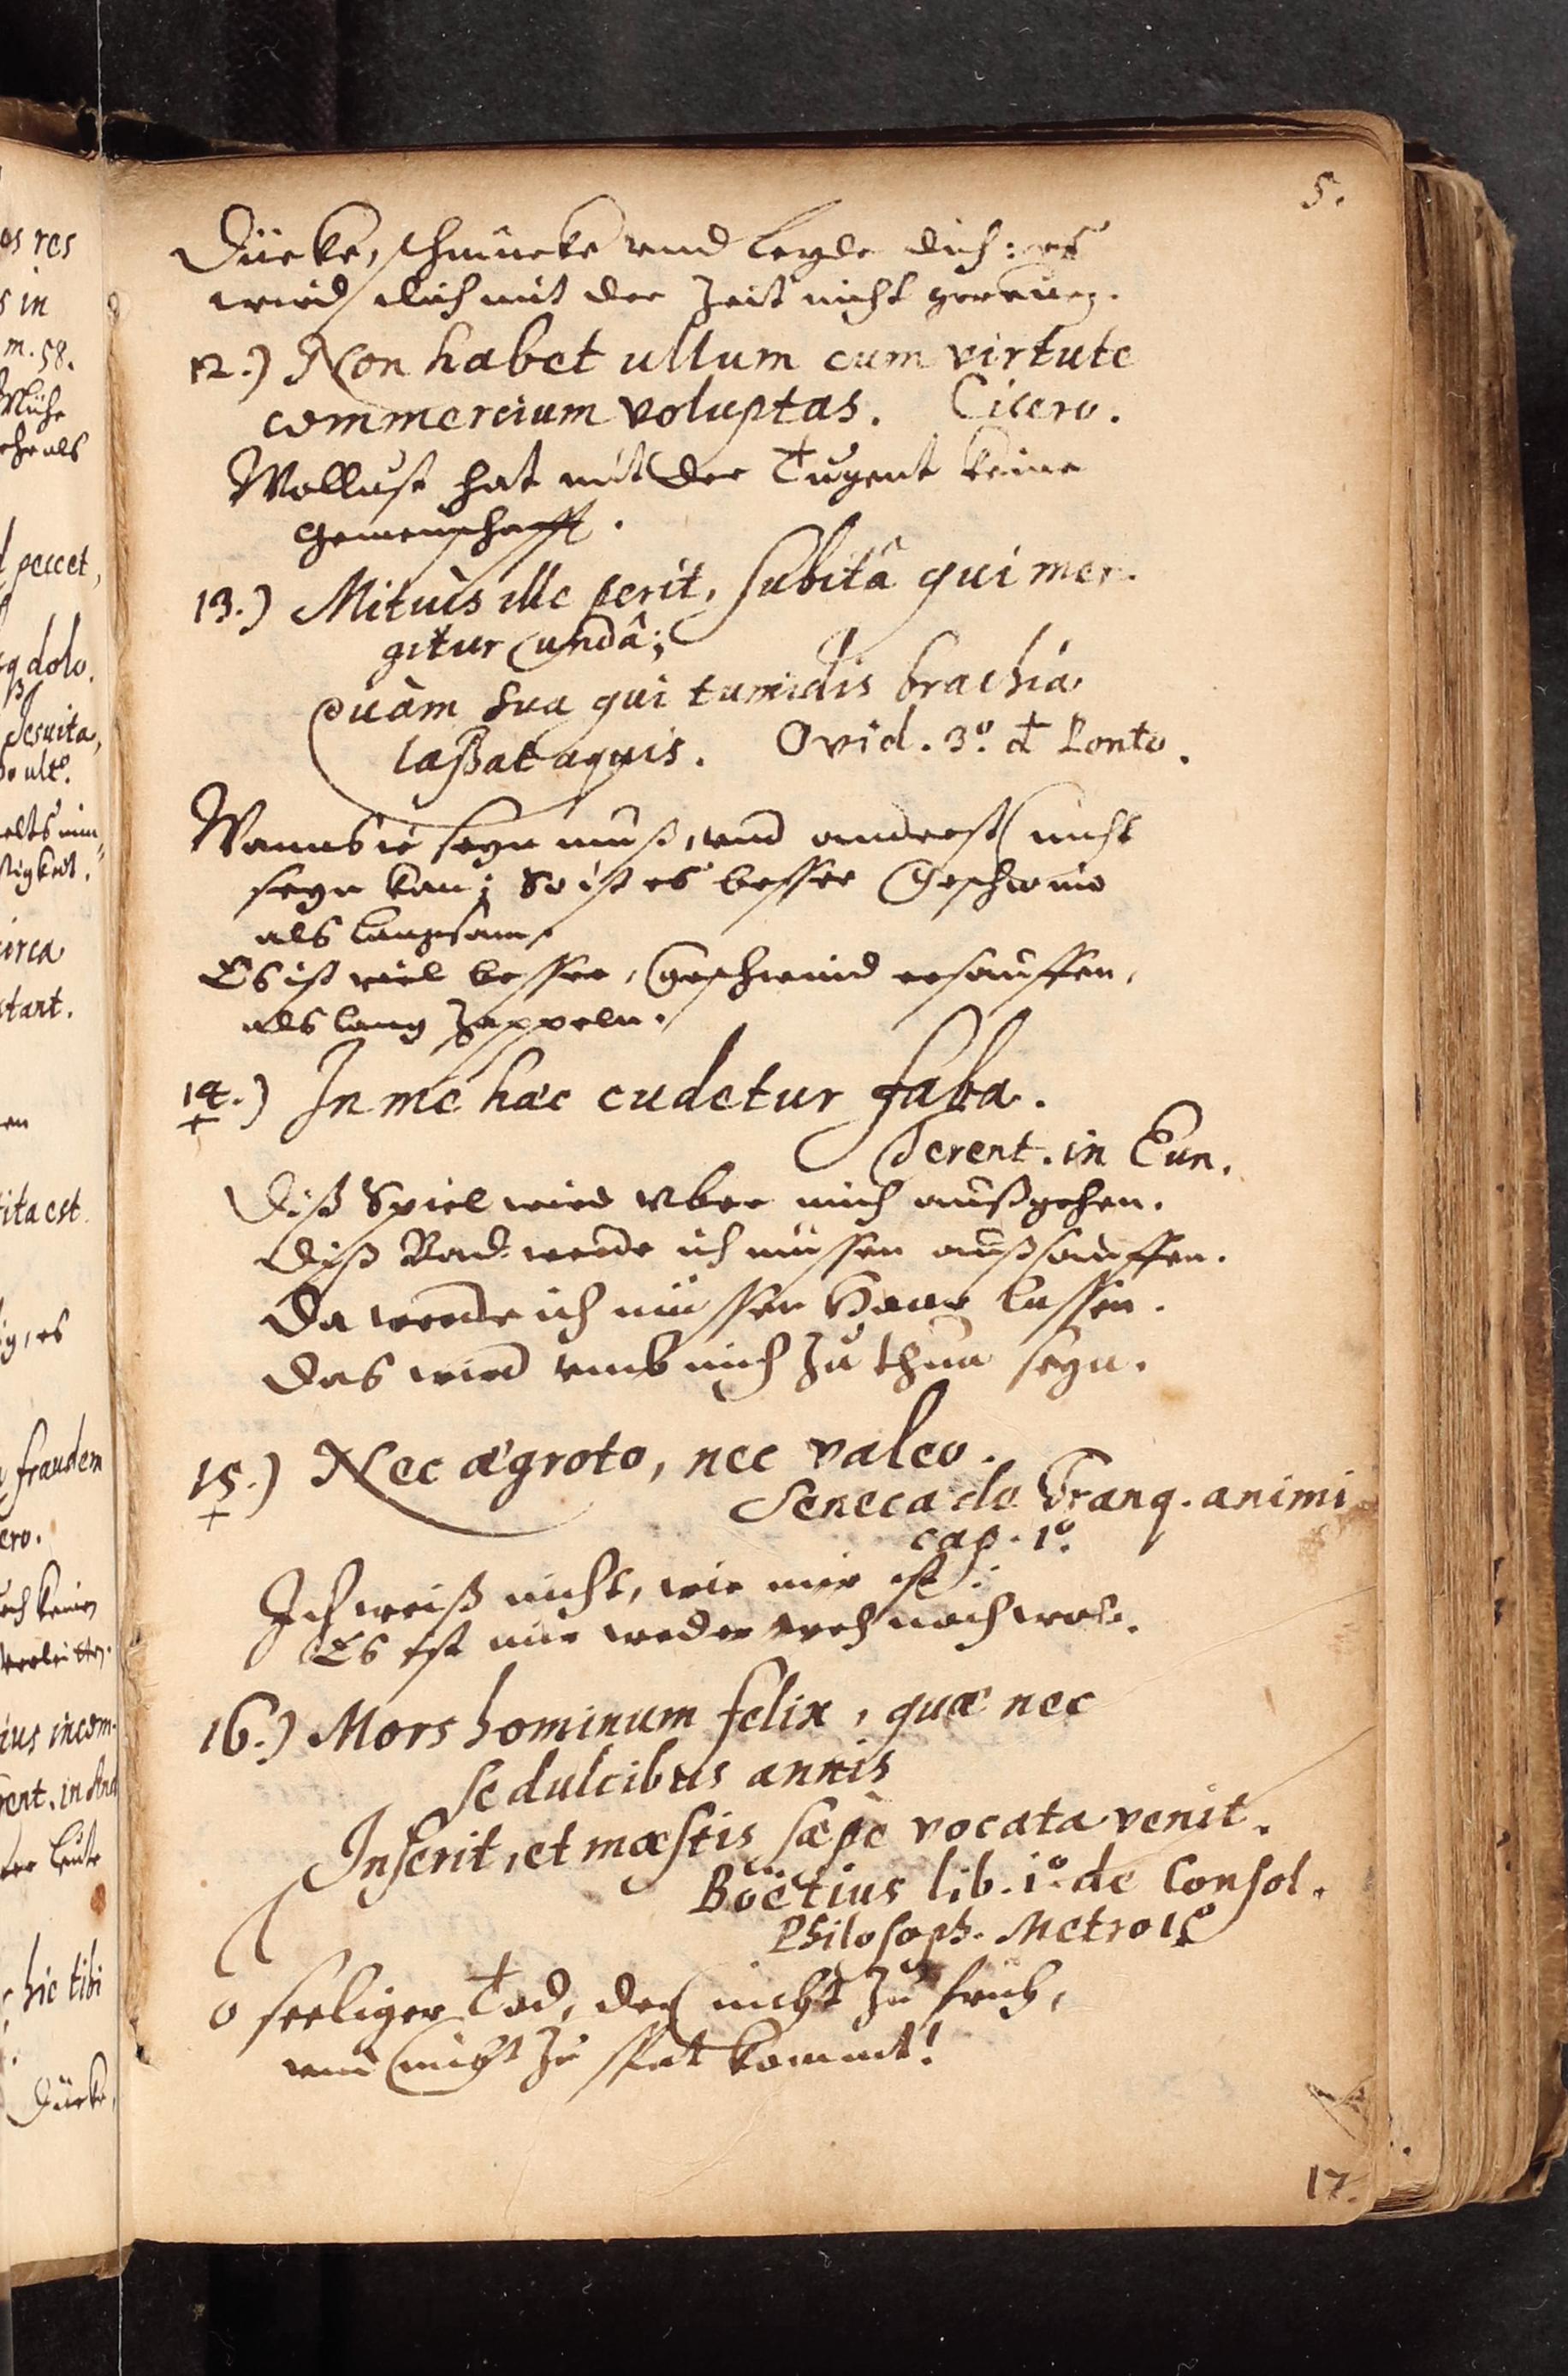 5.
Dücke, schmücke und leyde dich: es
wird dich mit der Zeit nicht gereuen.
12.) Non habet ullum cum virtute
commercium voluptas. Cicero.
Wollust hat mit der Tugent keine
Gemeinschafft.
13.) Mitiùs ille perit, subitâ qui mer-
gitur undâ;
Quàm sua qui tumidis brachia
laßat aquis. Ovid. 3.º d Ponto.
Wanns ie seyn muß, und anderst nicht
seyn kan; So ist es besser Geschwind
als langsam.
Es ist viel besser, Geschwind ersauffen,
als lang zappeln.
14.) In me hæc cudetur faba.
+
Terent. in Eun.
Diß Spiel wird uber mich außgehen.
Diß Bad werde ich müssen außsauffen.
Da werde ich müssen Haar lassen.
Das wird umb mich zu thun seyn.
15.) Nec ægroto, nec valeo.
+
Seneca de Tranq. animi
cap. 1.º
Ich weiß nicht, wie mir ist:
Es ist mir weder weh noch wol.
16.) Mors hominum felix, quæ nec
se dulcibus annis
Inserit, et mæstis sæpè vocata venit.
Boëtius lib. 1.º de Consol.
Philosoph. Metro 1.º
O seeliger Tod, der nicht zu früh,
und nicht zu spat kommt!
17.